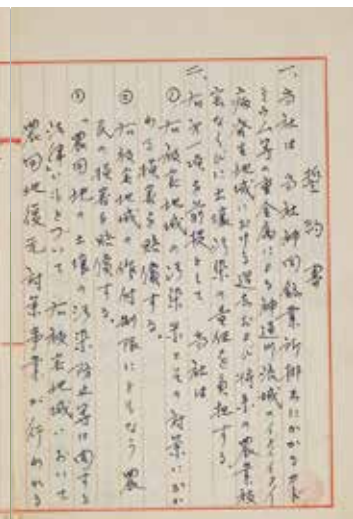 誓約書
一、当社は 当社神岡鉱業所排出にかかるカド
ミウム等の重金属による神通川流域のイタイイタイ
病発生地域における過去および将来の農業被
害ならびに土壌汚染の責任を負担する
二、右第一項を前提として 当社は
① 右被害地域の汚染米とその対策にかか
わる損害を賠償する。
② 右被害地域の作付制限にともなう 農
民の損害を賠償する。
③ 「農用地の土壌の汚染防止等に関する
法律」にもとづいて 右被害地域において
農用地復元対策事業が行われる